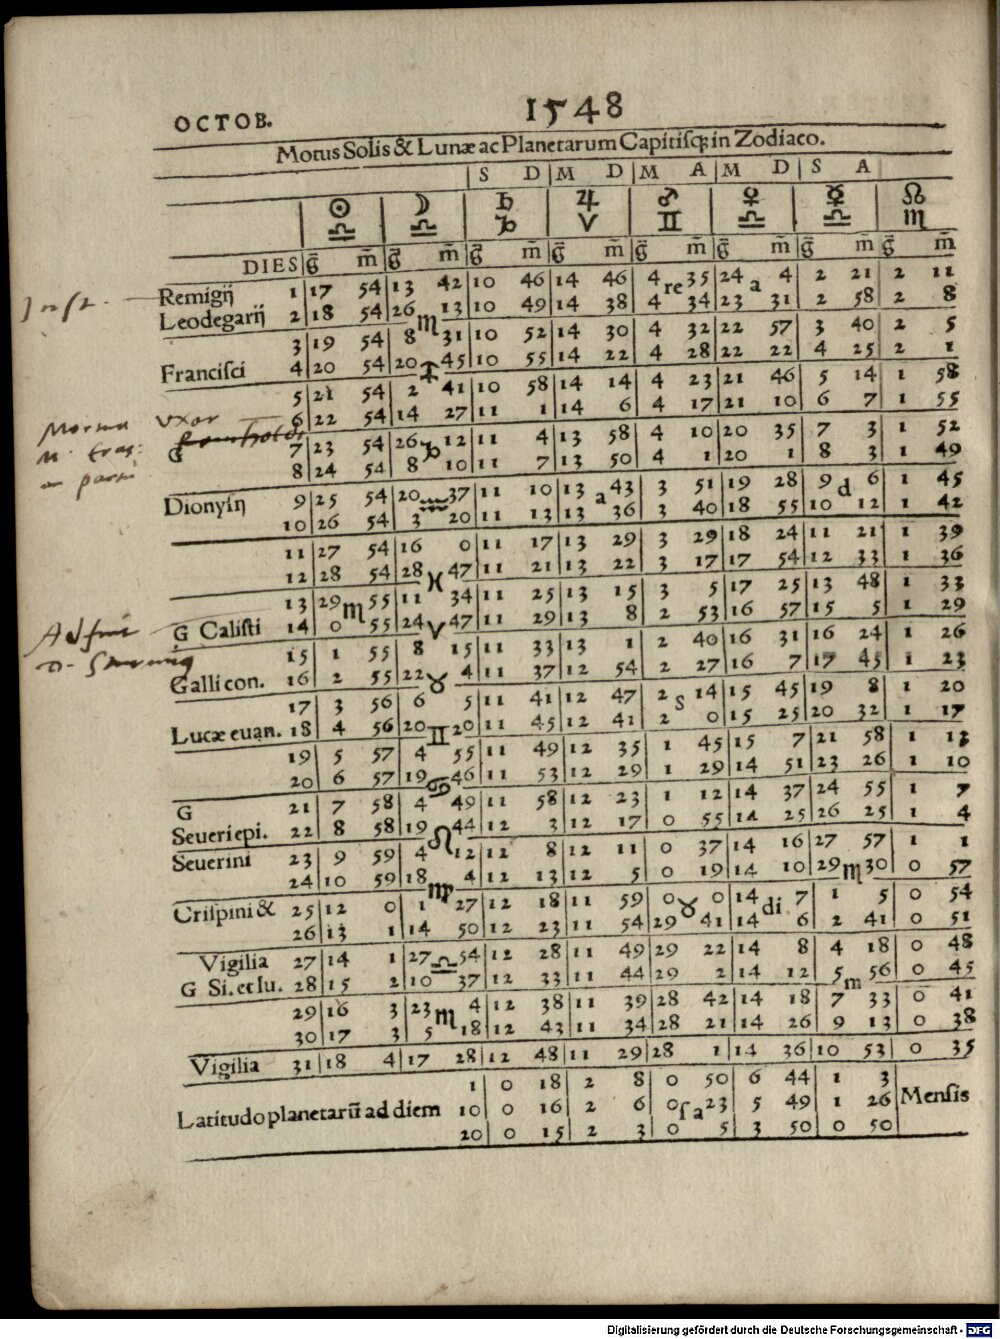 OCTOB. 1548
Motus Solis & Lunæ ac Planetarum Capitisq; in Zodiaco.
S D M D M A M D S A
☉ ☽ ♄ ♃ ♂ ♀ ☿ ☊
♎ ♎ ♑ ♈ ♊ ♎ ♎ ♏
DIES g̃ m̃ g̃ m̃ g̃ m̃ g̃ m̃ g̃ m̃ g̃ m̃ g̃ m̃ g̃ m̃
Remigij 1 17 54 13 42 10 46 14 46 4 re 35 24 a 4 2 21 2 11
Leodegarij 2 18 54 26 ♏ 13 10 49 14 38 4 34 23 31 2 58 2 8
3 19 54 8 31 10 52 14 30 4 32 22 57 3 40 2 5
Francisci 4 20 54 20 ♐ 45 10 55 14 22 4 28 22 22 4 25 2 1
5 21 54 2 41 10 58 14 14 4 23 21 46 5 14 1 58
vxor 6 22 54 14 27 11 1 14 6 4 17 21 10 6 7 1 55
G 7 23 54 26 ♑ 12 11 4 13 58 4 10 20 35 7 3 1 52
8 24 54 8 10 11 7 13 50 4 1 20 1 8 3 1 49
Dionysij 9 25 54 20 ♒ 37 11 10 13 a 43 3 51 19 28 9 d 6 1 45
10 26 54 3 20 11 13 13 36 3 40 18 55 10 12 1 42
11 27 54 16 0 11 17 13 29 3 29 18 24 11 21 1 39
12 28 54 28 ♓ 47 11 21 13 22 3 17 17 54 12 33 1 36
13 29 ♏ 55 11 34 11 25 13 15 3 5 17 25 13 48 1 33
G Calisti 14 0 55 24 ♈ 47 11 29 13 8 2 53 16 57 15 5 1 29
15 1 55 8 15 11 33 13 1 2 40 16 31 16 24 1 26
Galli con. 16 2 55 22 ♉ 4 11 37 12 54 2 27 16 7 17 45 1 23
17 3 56 6 5 11 41 12 47 2 s 14 15 45 19 8 1 20
Lucæ euan. 18 4 56 20 ♊ 20 11 45 12 41 2 0 15 25 20 32 1 17
19 5 57 4 55 11 49 12 35 1 45 15 7 21 58 1 13
20 6 57 19 ♋ 46 11 53 12 29 1 29 14 51 23 26 1 10
G 21 7 58 4 49 11 58 12 23 1 12 14 37 24 55 1 7
Seueri epi. 22 8 58 19 ♌ 44 12 3 12 17 0 55 14 25 26 25 1 4
Seuerini 23 9 59 4 12 12 8 12 11 0 37 14 16 27 57 1 1
24 10 59 18 ♍ 4 12 13 12 5 0 19 14 10 29 ♏ 30 0 57
Crispini & 25 12 0 1 27 12 18 11 59 0 ♉ 0 14 di 7 1 5 0 54
26 13 1 14 50 12 23 11 54 29 41 14 6 2 41 0 51
Vigilia 27 14 1 27 ♎ 54 12 28 11 49 29 22 14 8 4 18 0 48
G Si. et Iu. 28 15 2 10 37 12 33 11 44 29 2 14 12 5 m 56 0 45
29 16 3 23 ♏ 4 12 38 11 39 28 42 14 18 7 33 0 41
30 17 3 5 18 12 43 11 34 28 21 14 26 9 13 0 38
Vigilia 31 18 4 17 28 12 48 11 29 28 1 14 36 10 53 0 35
1 0 18 2 8 0 50 6 44 1 3
Latitudo planetarũ ad diem 10 0 16 2 6 0 ſa 23 5 49 1 26 Mensis
20 0 15 2 3 0 5 3 50 0 50
Digitalisierung gefördert durch die Deutsche Forschungsgemeinschaft - DFG